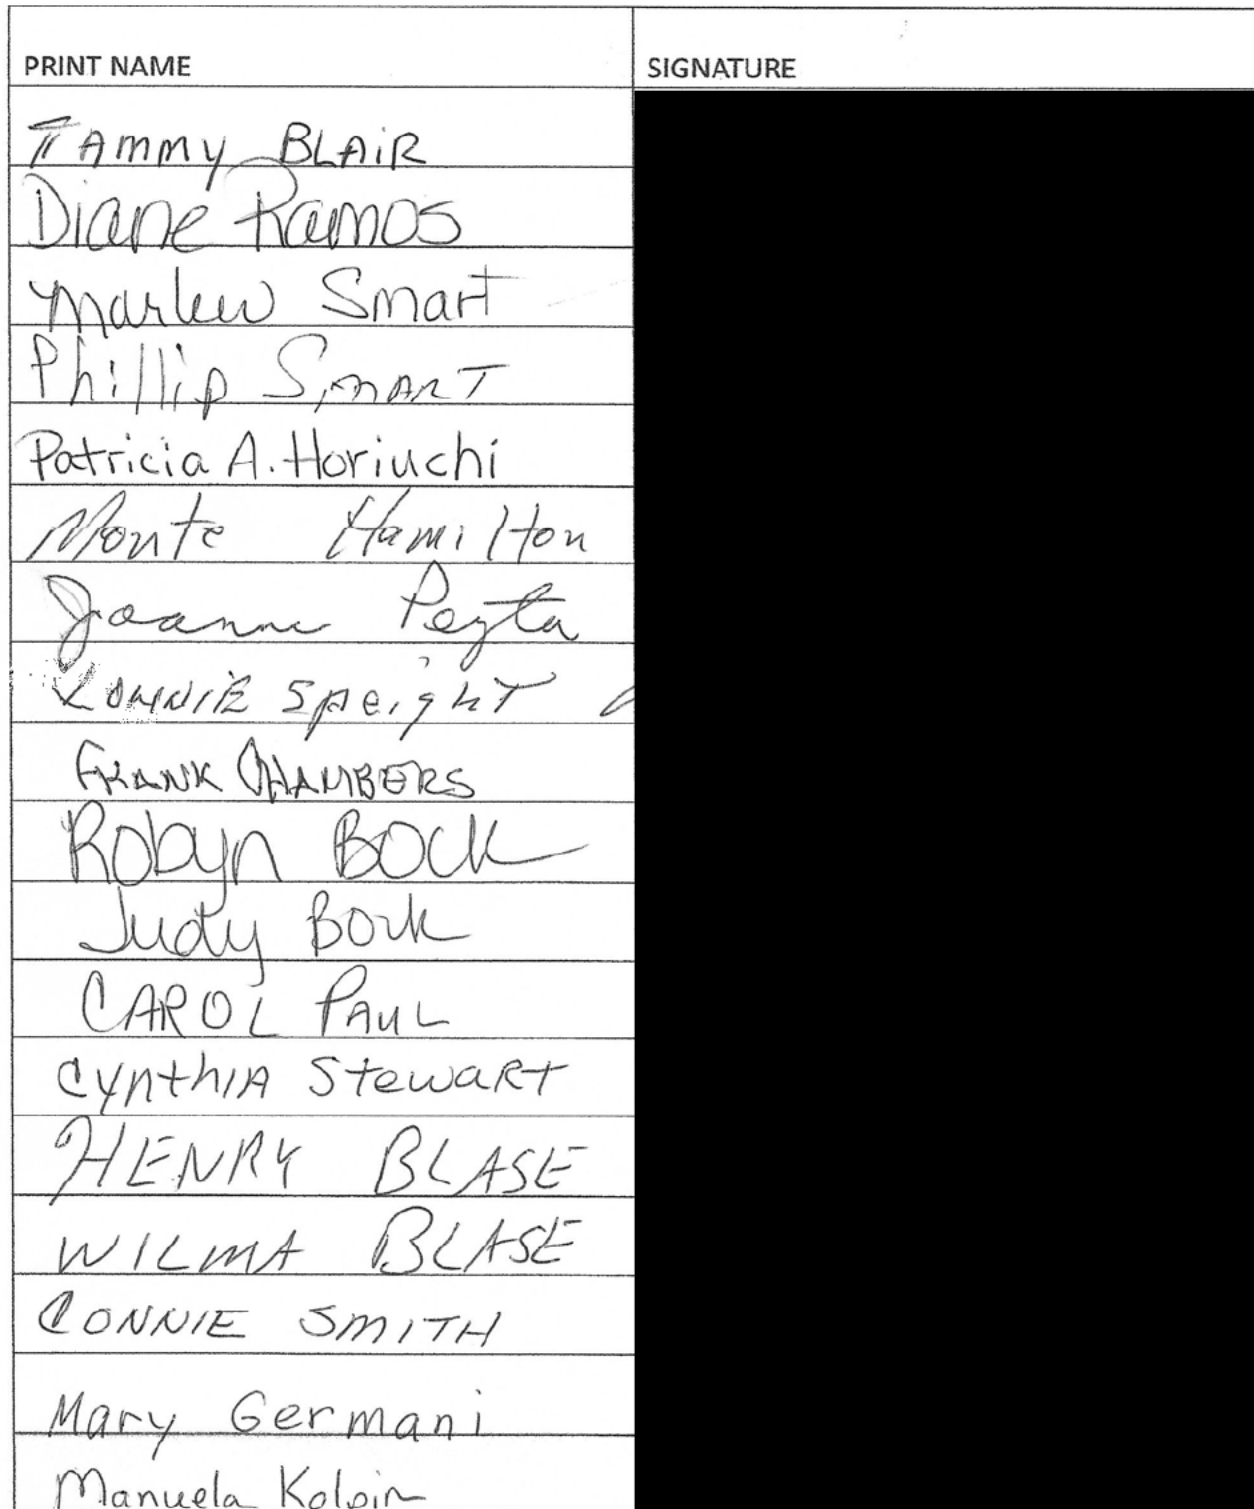 PRINT NAME SIGNATURE
TAMMY BLAIR
Diane Ramos
Smart
Phillip SMART
Patricia A. Horiuchi
Monte Hamilton
Joanne
LONNIE SpeighT
FRANK CHAMBERS
Robyn Bock
Judy Bock
CAROL PAUL
CynthIA StewaRT
HENRY BLASE
WILMA BLASE
CONNIE SMITH
Mary Germani
Manuela